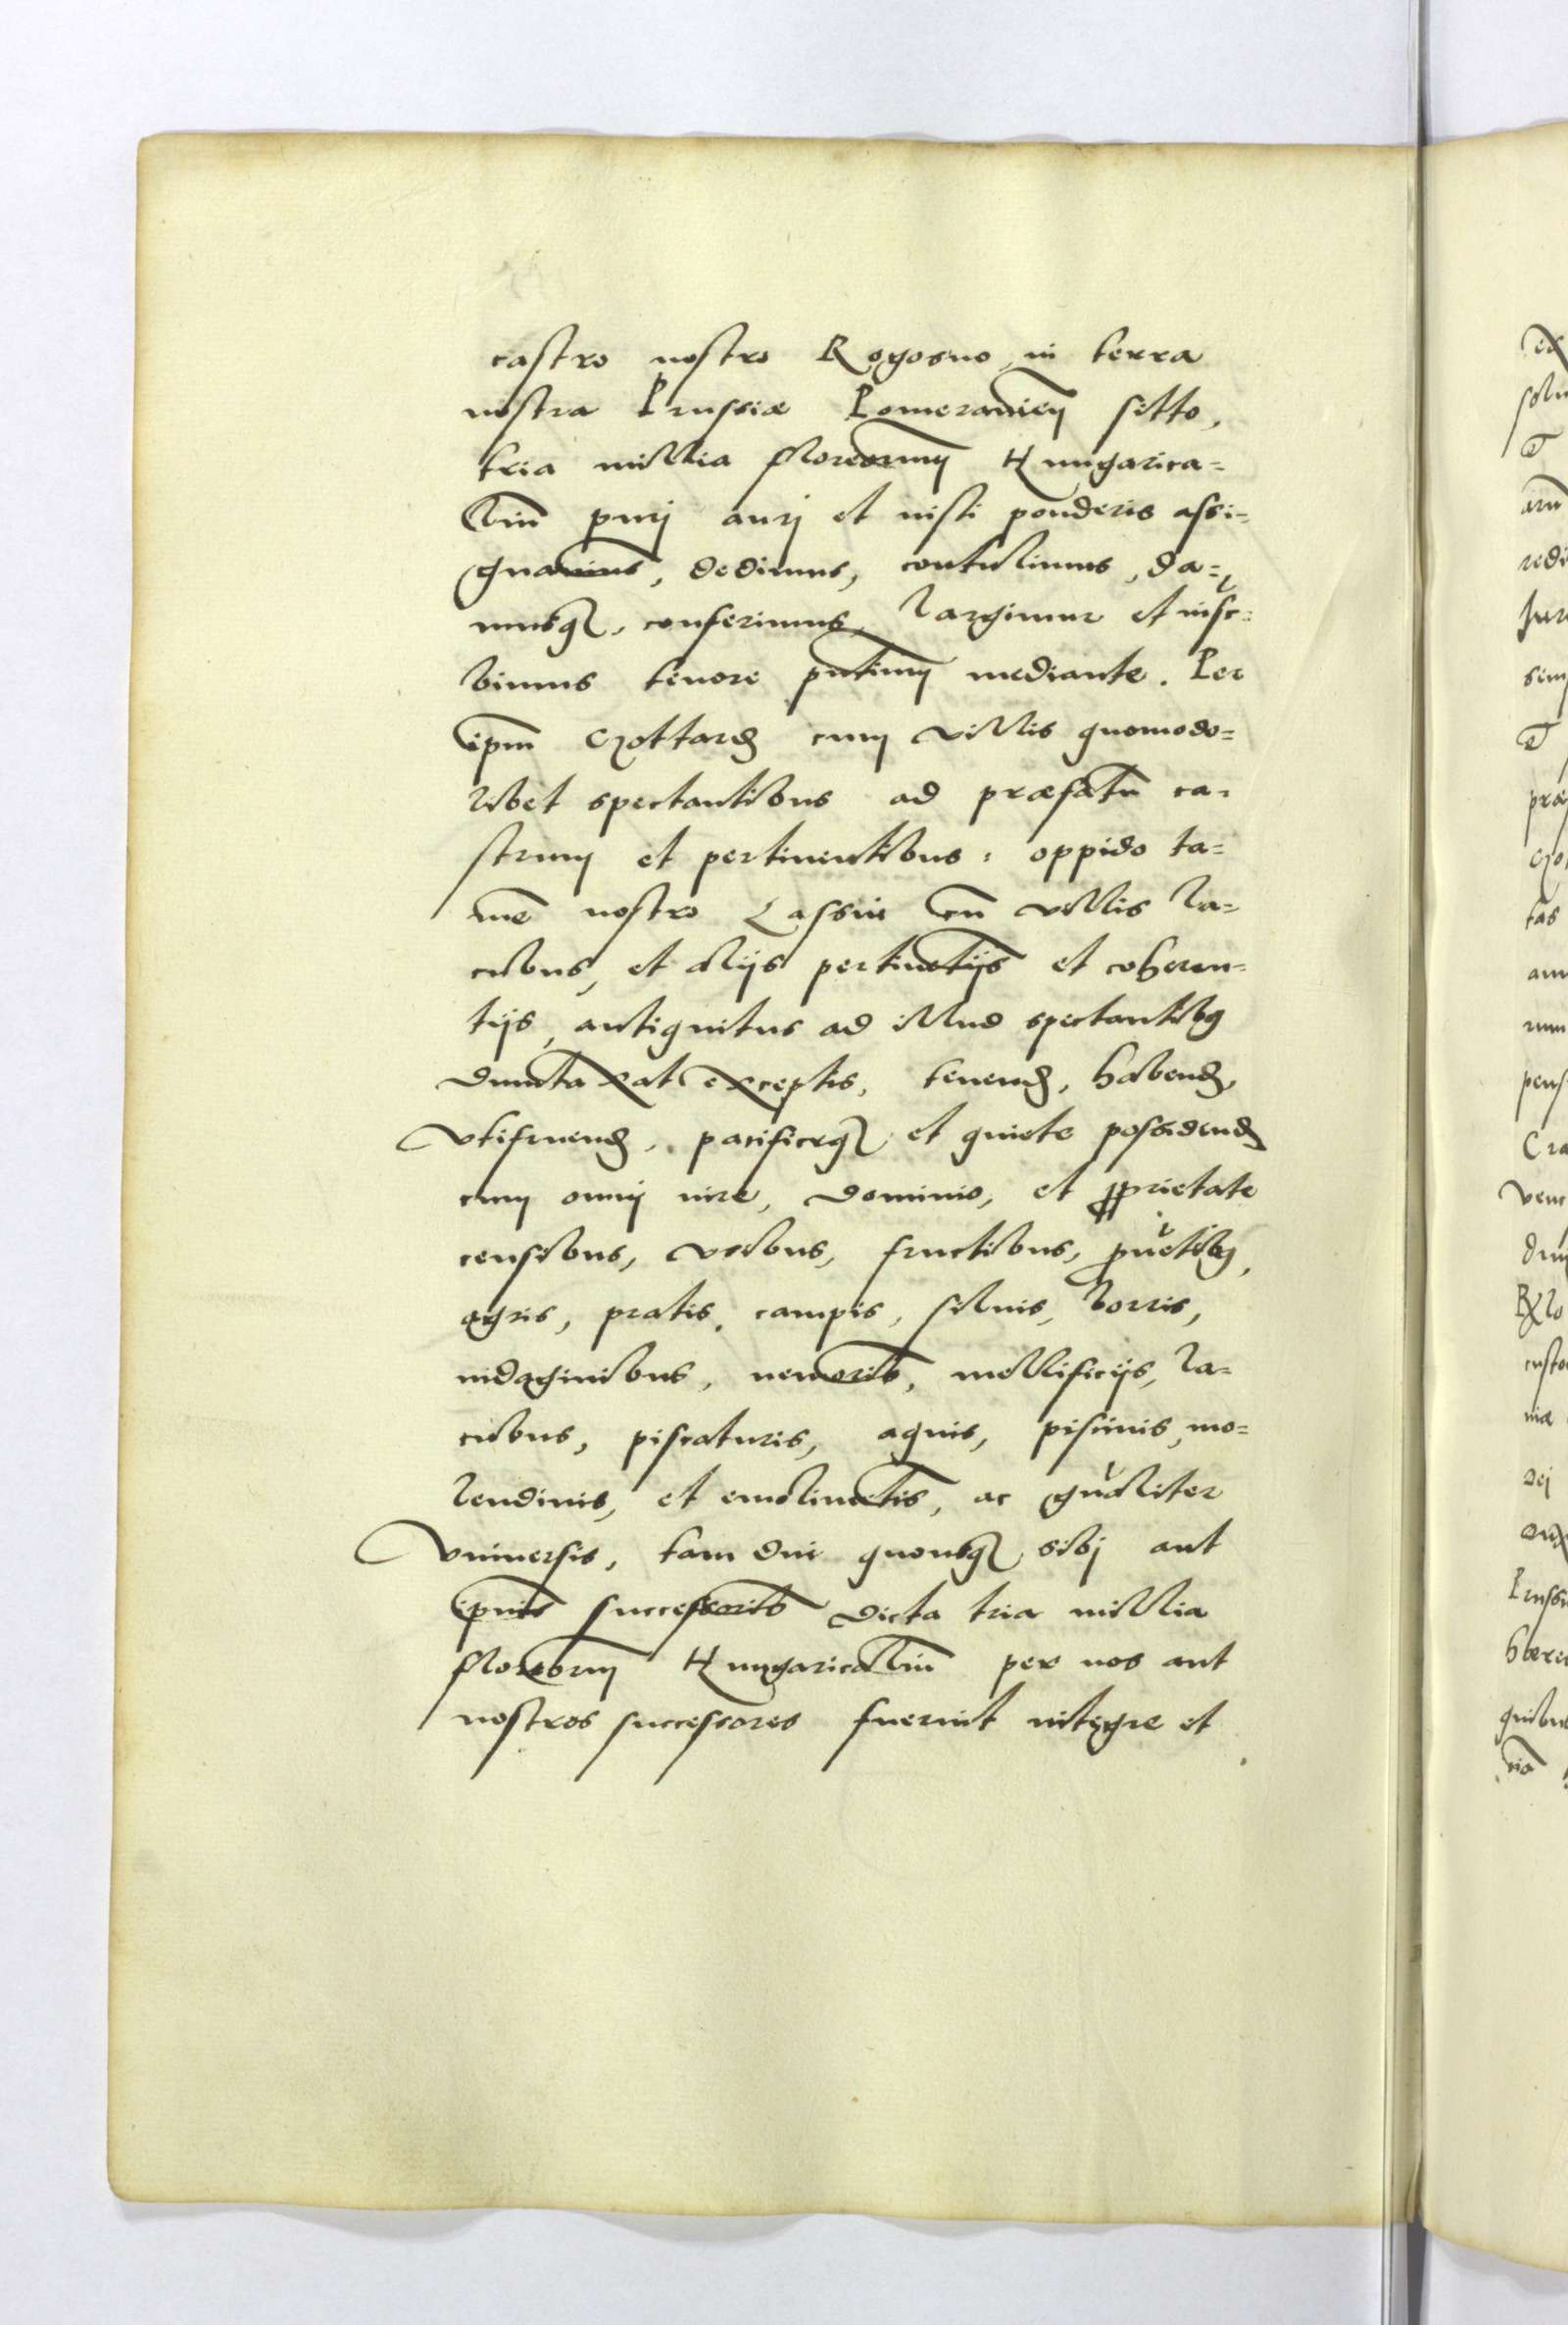 castro nostro Rogosno in terra
nostra Prussiæ Pomeranien̄ sitto,
tria millia florenorum Hungarica=
lium purj aurj et iusti ponderis assi=
gnavimus, dedimus, contulimus, da=
musq, conferimus, largimur et inscr=
bimus tenore pn̄tium mediante. Per
ipm̄ Czottard cum villis quomodo=
libet spectantibus ad præfatū ca=
strum et pertinentibus: oppido ta=
mē nostro Lassin cū villis la=
cubus, et alijs pertinētijs et coheren=
tijs, antiquitus ad illud spectantibq
duntaxat exceptis, tenend, habend,
vtifruend, pacificeq et quiete possidend
cum omnj iure, dominio, et proprietate
censibus, vsibus, fructibus, prouētibq,
agris, pratis, campis, siluis, borris,
indaginibus, nemorib, mellificijs, la=
cubus, piscaturis, aquis, piscinis, mo=
lendinis, et emolimētis, ac gn̄aliter
vniuersis, tam diu quousq sibj aut
ipius successorib dicta tria millia
florenorum Hungaricalium per nos aut
nostros successores fuerint integre et